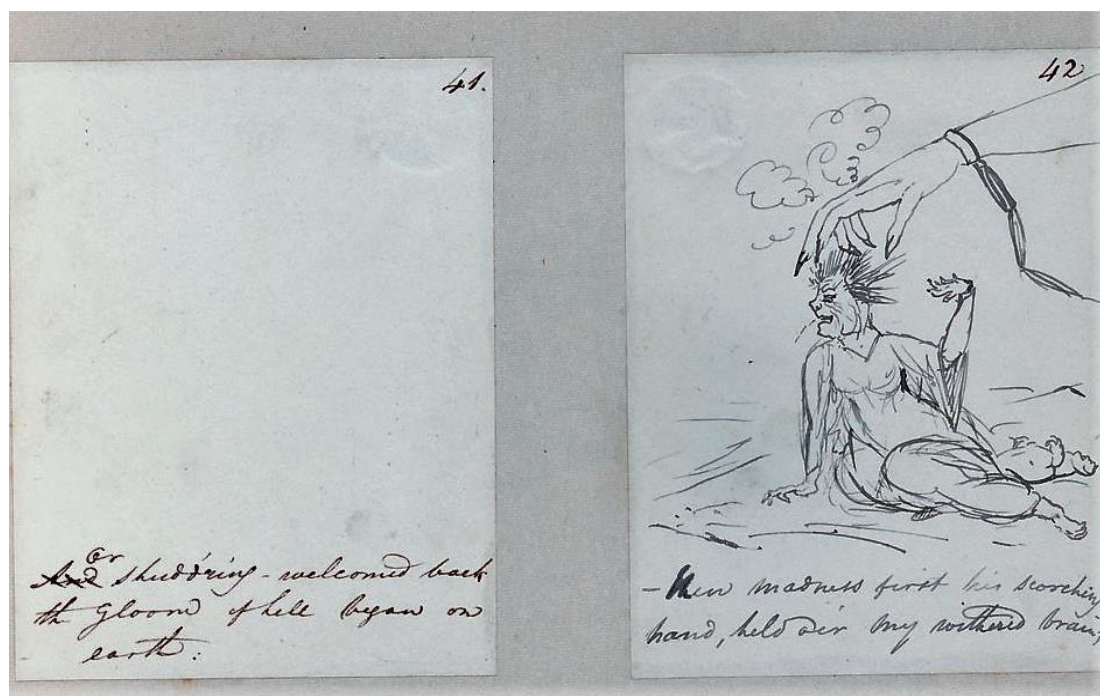 41.
Or
And shudd'ring - welcomed back
th gloom of hell began on
earth:
42
- Then madness first his scorching
hand, held o'er my withered brain,